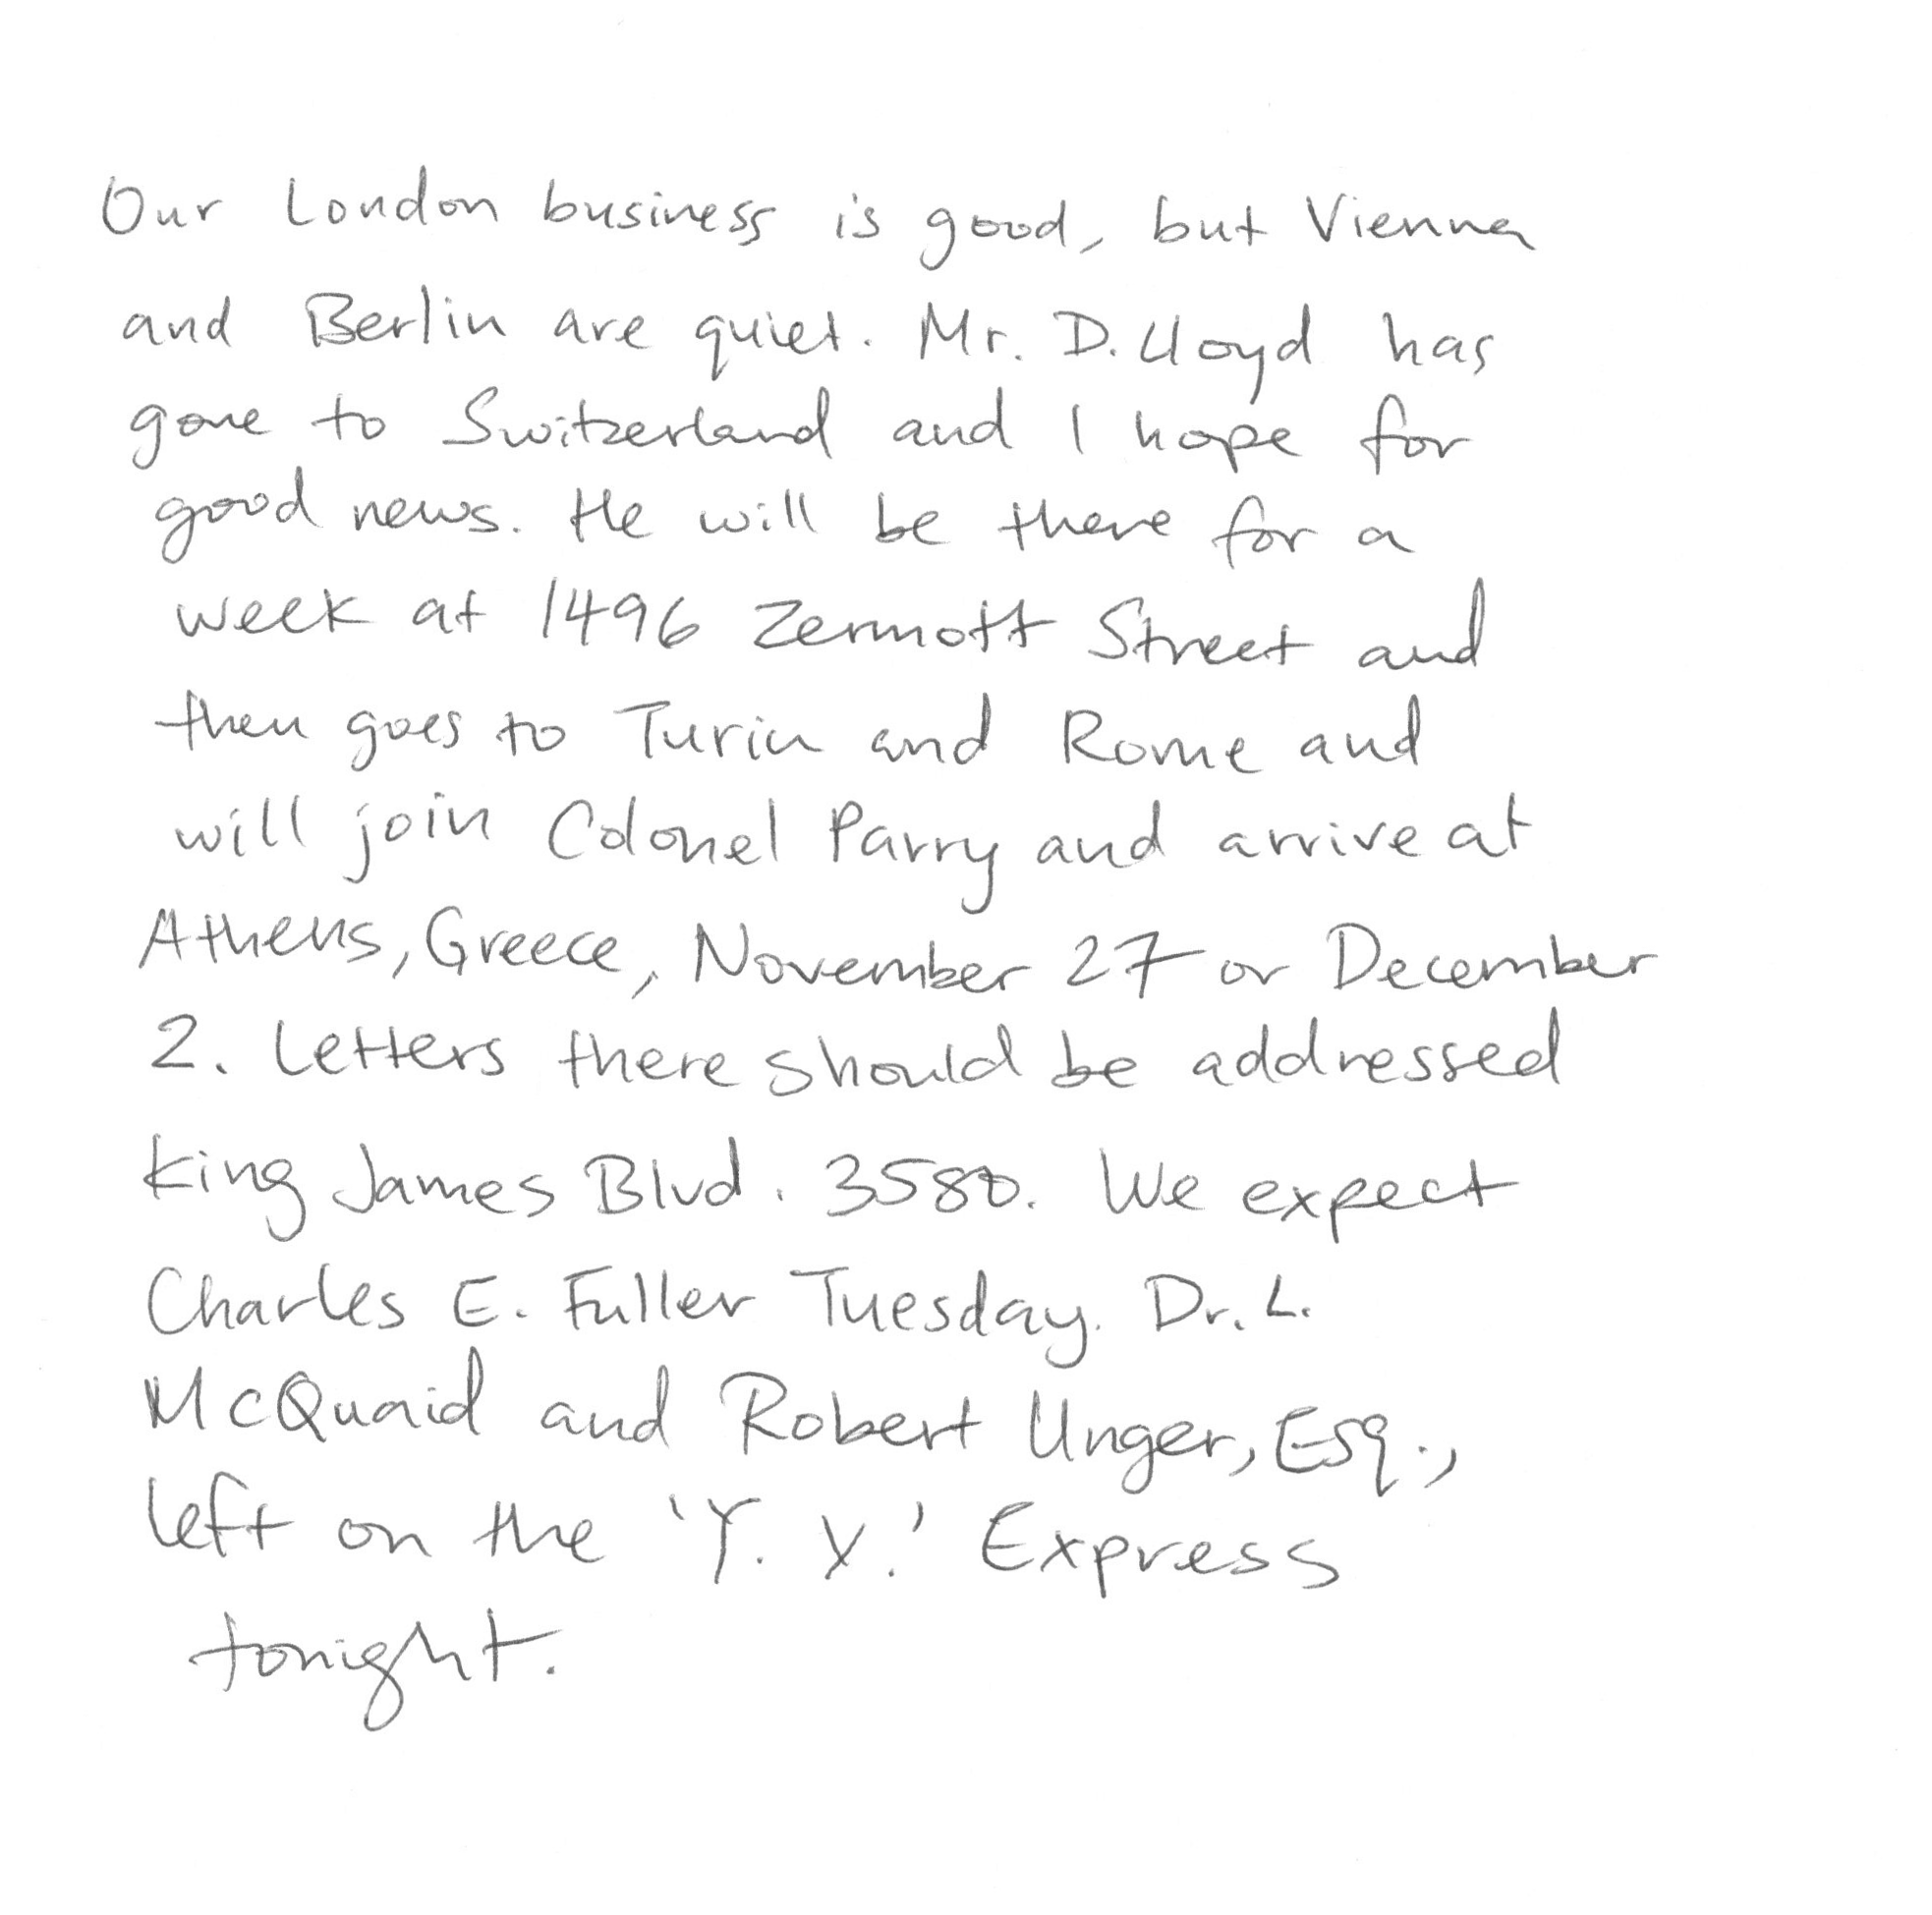 Our London business is good, but Vienna
and Berlin are quiet. Mr. D. Lloyd has
gone to Switzerland and I hope for
good news. He will be there for a
week at 1496 Zermott Street and
then goes to Turin and Rome and
will join Colonel Parry and arrive at
Athens, Greece, November 27 or December
2. Letters there should be addressed
King James Blvd. 3580. We expect
Charles E. Fuller Tuesday. Dr. L.
McQuaid and Robert Unger, Esq.,
left on the 'Y. X.' Express
tonight.